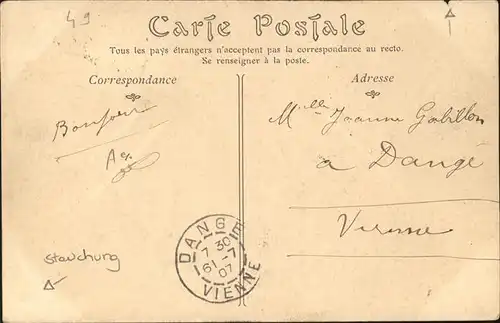 49
Carte Postale
Tous les pays étrangers n'acceptent pas la correspondance au recto.
Se renseigner à la poste.
Correspondance
Adresse
Bonjour
Mlle Jeanne Gabillon
a Dangé
Vienne
DANGE
7 30
61-7
07
VIENNE
Stauchung